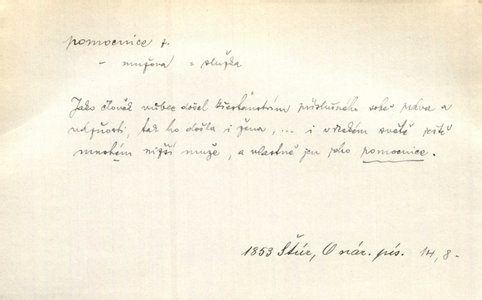 pomocnice f.
– mužova = služka
Jako člověk vůbec došel křesťanstvím příslušného sobě práva a
vážnosti, tak ho došla i žena, ... i v řeckém světě ještě
mnohém nižší muže, a vlastně jen jeho pomocnice.
1853 Štúr, O nár. pís. 14, 8 –